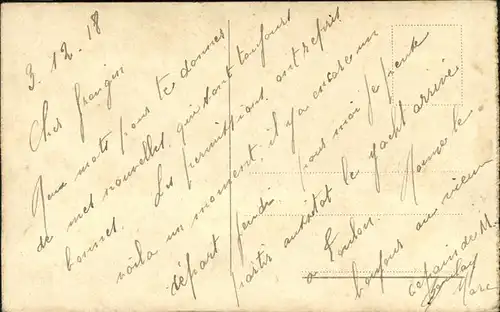 3. 12. 18
Cher frangin
Deux mots pour te donner
de mes nouvelles qui sont toujours
bonnes. Les permissions ont repris
voila un moment, il y a encore un
départ jeudi. Pour moi je pense
partir aussitot le yacht arrivé
a Toulon. Donne le
bonjour au vieux
copain de M.
Marc